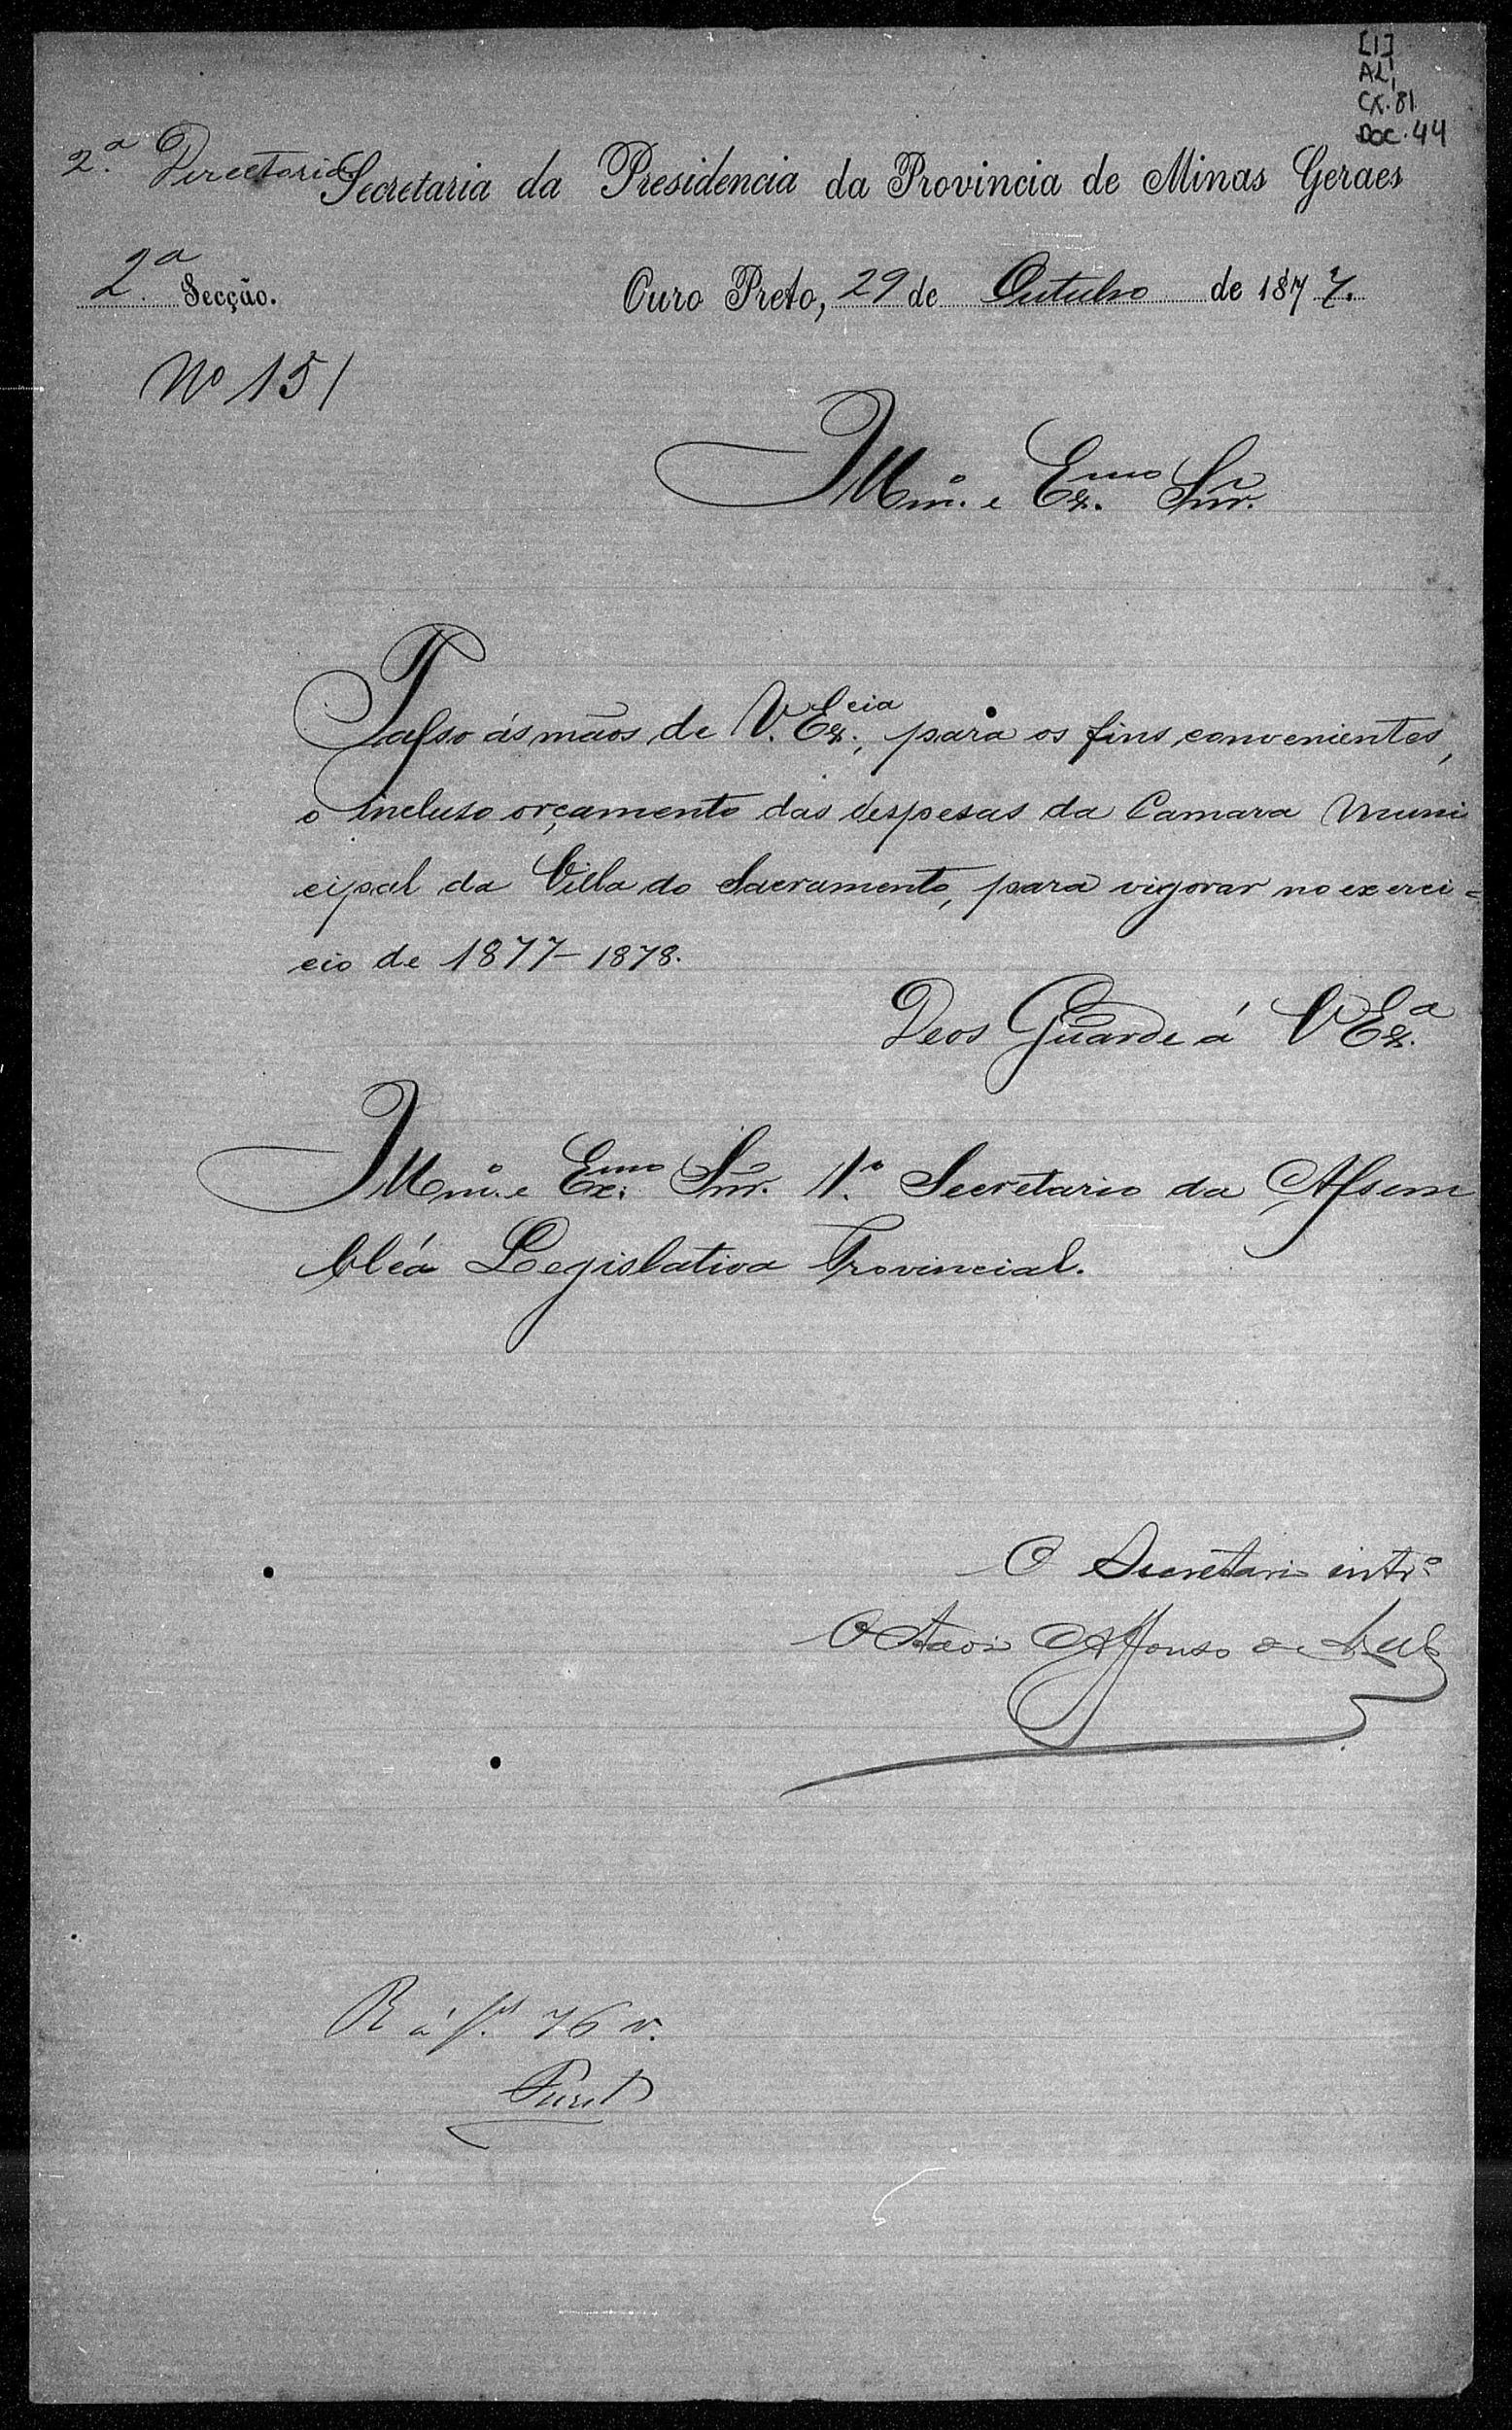 [1]
AL,
CX. 81
DOC. 44
2.ª Directoria Secretaria da Presidencia da Provincia de Minas Geraes
2ª Secção. Ouro Preto, 29 de Outubro de 1877.
Nº 151
Illm.º e Ex.mo Snr.
Passo ás mãos de V. Ex.cia, para os fins convenientes,
o incluso orçamento das despesas da Camara Muni
cipal da Villa do Sacramento, para vigorar no exerci=
cio de 1877-1878.
Deos Guarde á V Ex.ª
Illm.º e Ex.mo Snr. 1.º Secretario da Assem
bléa Legislativa Provincial.
O Secretario intr.º
Octavio Affonso de
R á f. 76 v.